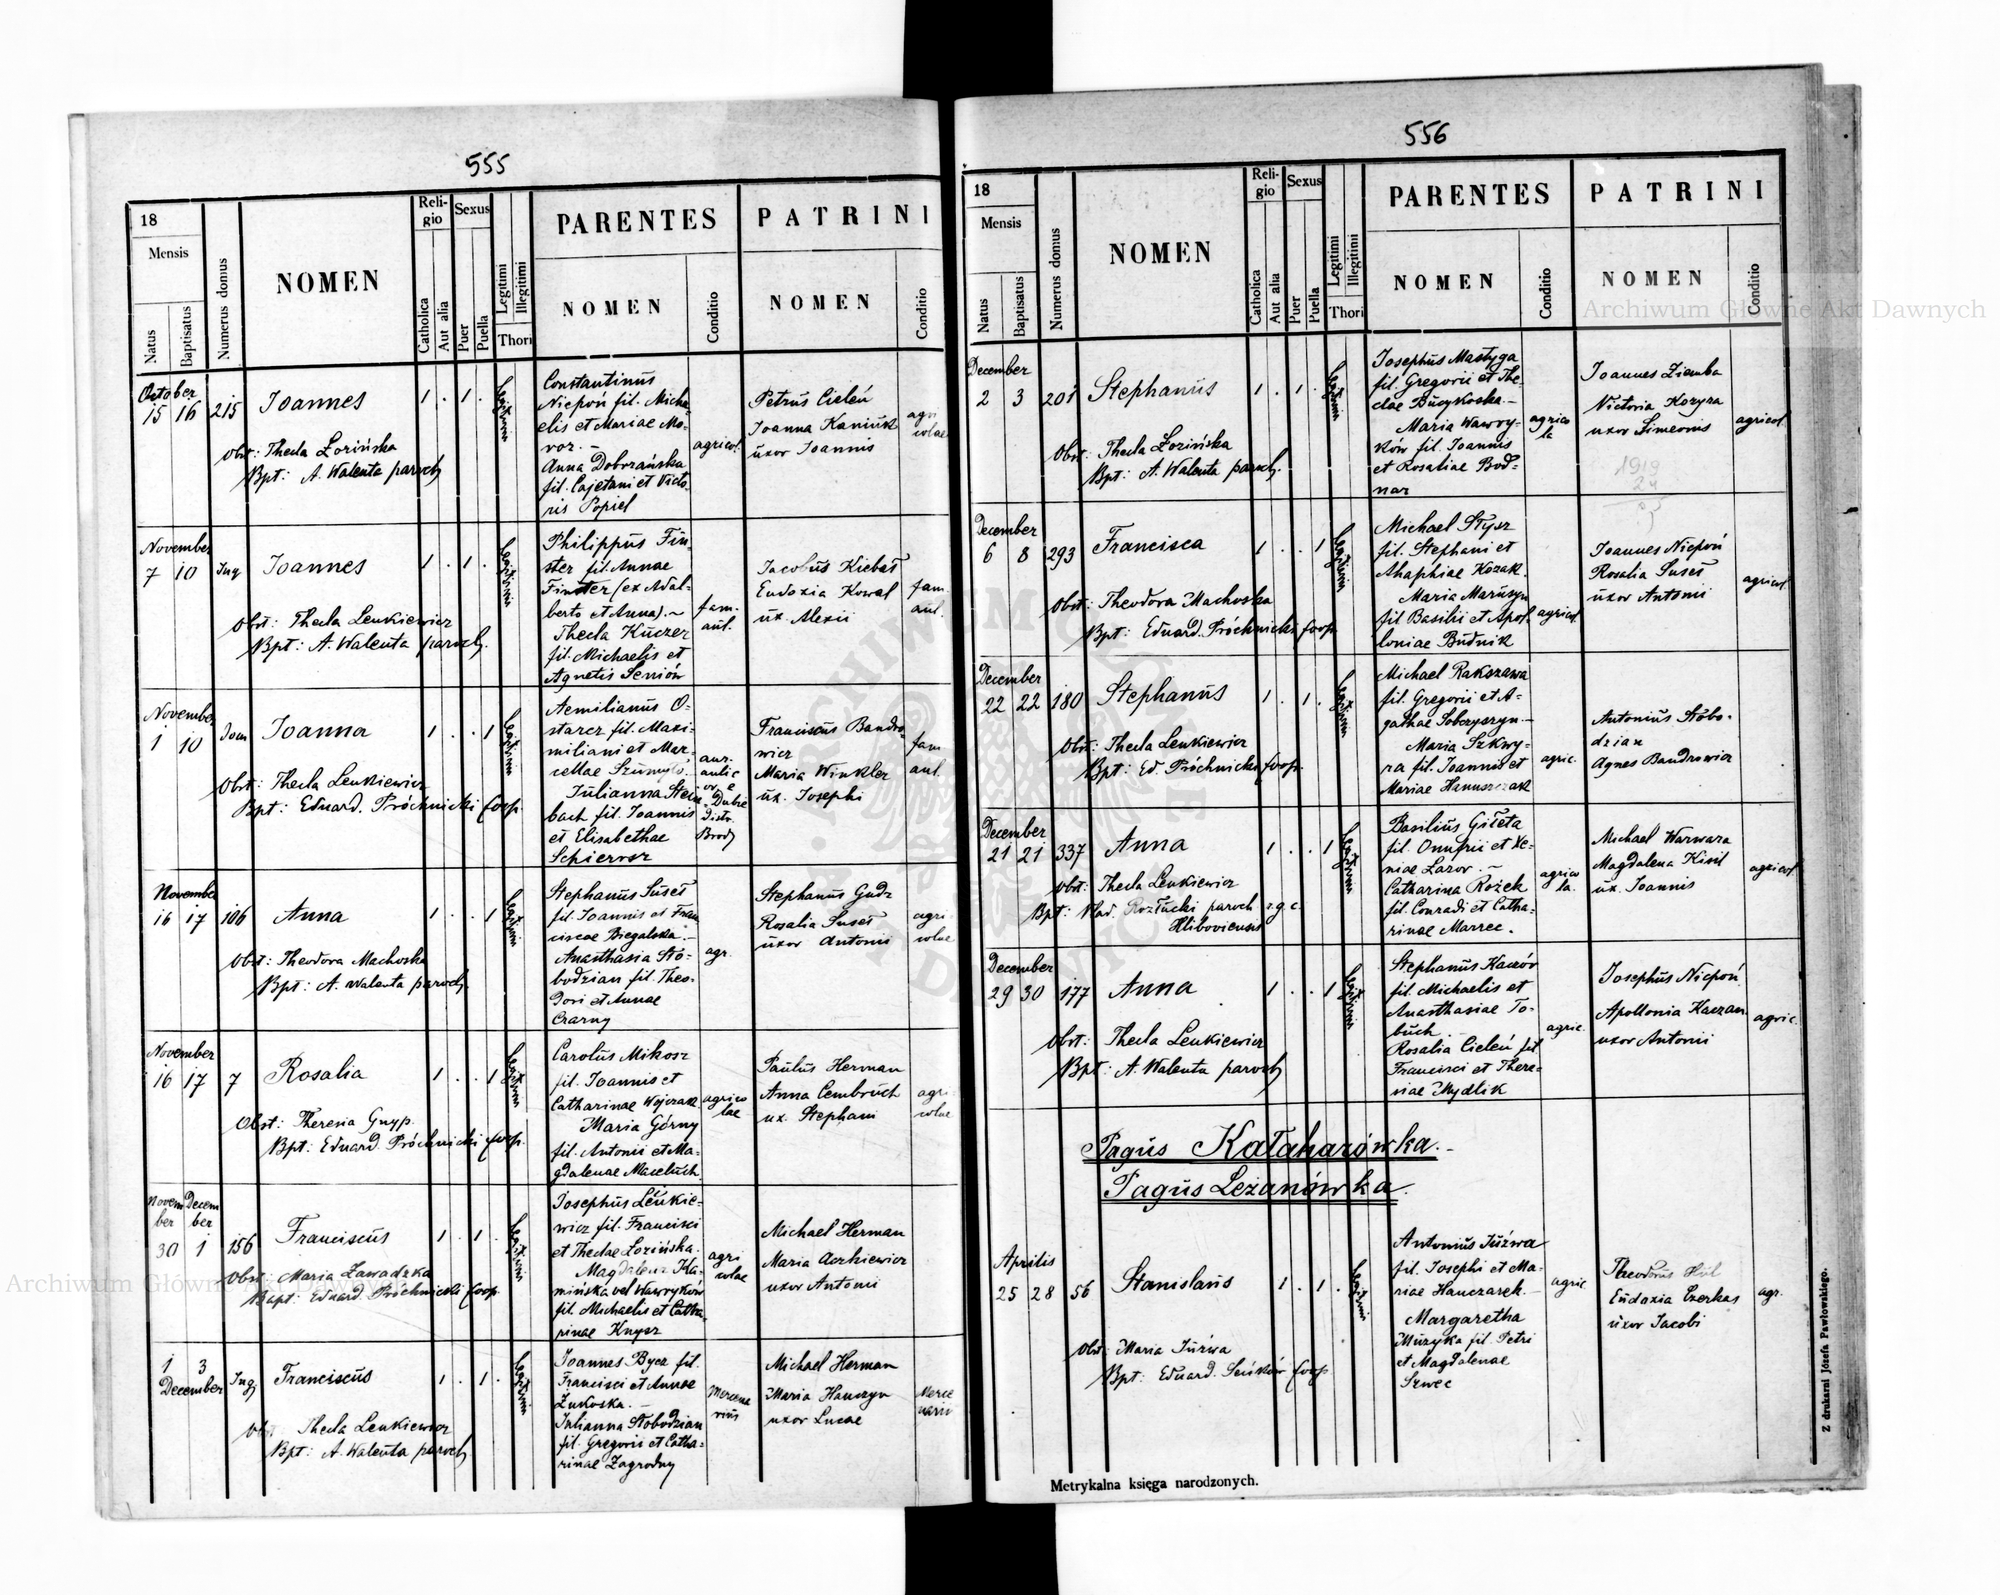 555
18
Mensis
Natus
Baptisatus
Numerus domus
NOMEN
Reli-
gio
Catholica
Aut alia
Sexus
Puer
Puella
Legitimi
Illegitimi
Thori
PARENTES
NOMEN
Conditio
PATRINI
NOMEN
Conditio
October
15 16 215 Joannes 1 . 1 .
Obst: Thecla Łozińska
Bpt: A. Walenta paroch
Constantinus
Niepoń fil. Micha-
elis et Mariae Mo-
roz. –
Anna Dobrzańska
fil. Cajetani et Victo-
ris Popiel
agricol.
Petrus Cieleń
Joanna Kaniuk
uxor Joannis
agri
colae
November
7 10 Inq Joannes 1 . 1 .
Obst: Thecla Lenkiewicz
Bpt: A. Walenta paroch.
Philippus Fin-
ster fil. Annae
Finster (ex Adal-
berto et Anna). ~
Thecla Kuczer
fil. Michaelis et
Agnetis Seniów
fam.
aul.
Jacobus Kiebał
Eudoxia Kowal
ux. Alexii
fam.
aul.
November
1 10 Dom Joanna 1 . . 1
Obst: Thecla Lenkiewicz
Bpt: Eduard. Próchnicki Coop.
Aemilianus O-
starcz fil. Maxi-
miliani et Mar-
cellae Szumyło.
Julianna Stein
bach fil. Joannis
et Elisabethae
Schierosz
Distr.
Brody
Franciscus Bandro-
wicz
Maria Winkler
ux. Josephi
fam
aul.
November
16 17 106 Anna 1 . . 1
Obst: Theodora Machoska
Bpt: A. Walenta paroch.
Stephanus Suseł
fil. Joannis et Fran
ciscae Biegalska. –
Anasthasia Sło-
bodzian fil. Theo-
dori et Annae
Czarny
agr.
Stephanus Gudz
Rosalia Suseł
uxor Antonii
agri-
colae
November
16 17 7 Rosalia 1 . . 1
Obst: Theresia Gnyp.
Bpt: Eduard. Próchnicki Coop.
Carolus Mikosz
fil. Joannis et
Catharinae Wojczak
Maria Górny
fil. Antonii et Ma-
gdalenae Maceluch
agrico
lae
Paulus Herman
Anna Cembruch
ux. Stephani
agri-
colae
Novem Decem
ber ber
30 1 156 Franciscus 1 . 1 .
Obst: Maria Zawadzka
Bapt: Eduard. Próchnicki Coop.
Josephus Lenkie-
wicz fil. Francisci
et Theclae Łozińska.
Magdalena Ka-
mińska vel Wawryków
fil. Michaelis et Catha-
rinae Knysz
agri
colae
Michael Herman
Maria Aczkiewicz
uxor Antonii
1 3
December Inq Franciscus 1 . 1 .
Obst: Thecla Lenkiewicz
Bpt: A. Walenta paroch
Joannes Bycz fil.
Francisci et Annae
Żukoska. –
Julianna Słobodzian
fil. Gregorii et Catha-
rinae Zagrodny
Mercena
rius
Michael Herman
Maria Hanczyn
uxor Lucae
Merce
narii
556
18
Mensis
Natus
Baptisatus
Numerus domus
NOMEN
Reli-
gio
Catholica
Aut alia
Sexus
Puer
Puella
Legitimi
Illegitimi
Thori
PARENTES
NOMEN
Conditio
PATRINI
NOMEN
Conditio
Archiwum Główne Akt Dawnych
December
2 3 201 Stephanus 1 . 1 .
Obst: Thecla Łozińska
Bpt: A. Walenta paroch.
Josephus Mastyga
fil. Gregorii et The-
clae Buczkoska. –
Maria Wawry-
ków fil. Joannis
et Rosaliae Bod-
nar
agrico
la
Joannes Ziemba
Victoria Kozyra
uxor Simeonis
agricol.
1919
24
December
6 8 293 Francisca 1 . . 1
Obst: Theodora Machoska
Bpt: Eduard. Próchnicki Coop.
Michael Stysz
fil. Stephani et
Ahaphiae Kozak.
Maria Marusyn
fil Basilii et Apol-
loniae Budnik
agricol.
Joannes Niepoń
Rosalia Suseł
uxor Antonii
agricol.
December
22 22 180 Stephanus 1 . 1 .
Obst: Thecla Lenkiewicz
Bpt: Ed. Próchnicki Coop.
Michael Rakszawa
fil. Gregorii et A-
gathae Sobczyszyn. –
Maria Szkwy-
ra fil. Joannis et
Mariae Hanuszczak
agric.
Antonius Słobo-
dzian
Agnes Bandrowicz
December
21 21 337 Anna 1 . . 1
Obst: Thecla Lenkiewicz
Bpt: Vlad. Rozłucki paroch r.g.c.
Hliboviensis
Basilius Gileta
fil. Onufrii et Xe-
niae Lazor –
Catharina Rożek
fil. Conradi et Catha-
rinae Marzec.
agrico
la.
Michael Warwara
Magdalena Kisil
ux. Joannis
agricol.
December
29 30 177 Anna 1 . . 1
Obst: Thecla Lenkiewicz
Bpt: A. Walenta paroch
Stephanus Kaczór
fil. Michaelis et
Anasthasiae To-
buch –
Rosalia Cieleń fil.
Francisci et There-
siae Mydlik
agric.
Josephus Niepoń
Apollonia Kaczan
uxor Antonii
agric.
Pagus Kałaharówka. –
Pagus Leżanówka.
Aprilis
25 28 56 Stanislaus 1 . 1 .
Obst: Maria Juźwa
Bpt: Eduard. Seńków Coop
Antonius Juźwa
fil. Josephi et Ma-
riae Hanczarek. –
Margaretha
Muzyka fil. Petri
et Magdalenae
Szwec
agric.
Theodorus Hul
Eudoxia Czerkas
uxor Jacobi
agr.
Metrykalna księga narodzonych.
Z drukarni Józefa Pawłowskiego.
Archiwum Główne Akt Dawnych